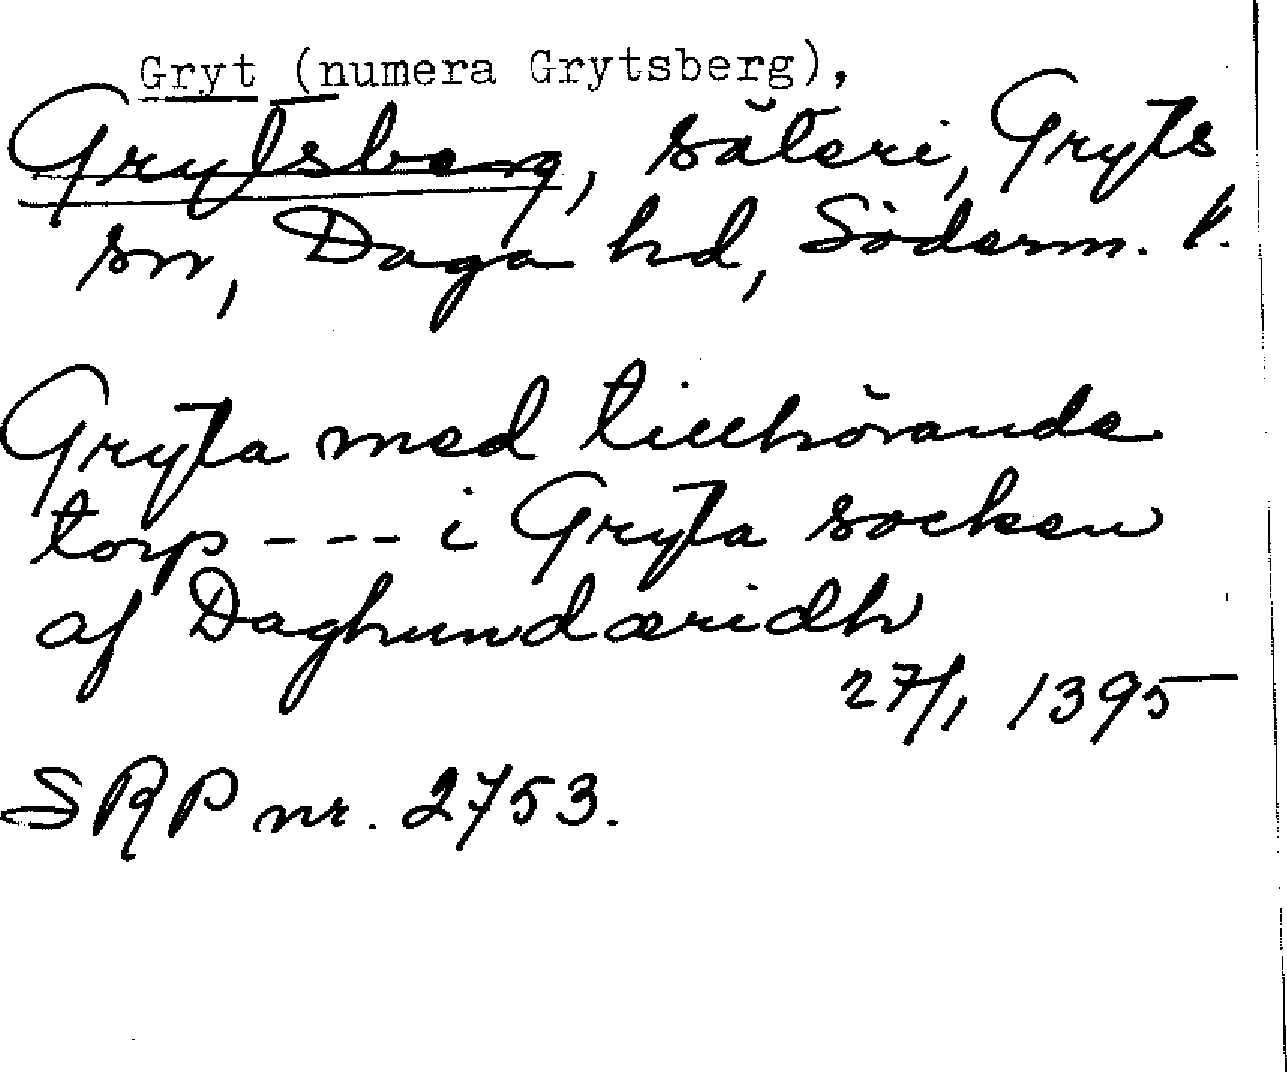 Gryt (numera Grytsberg),
Grytsberg, säteri, Gryts
sn, Daga hd, Söderm. l.
Gryta med tillhörande
torp --- i Gryta socken
af Daghundæridh
27/1 1395
SRP nr. 2753.